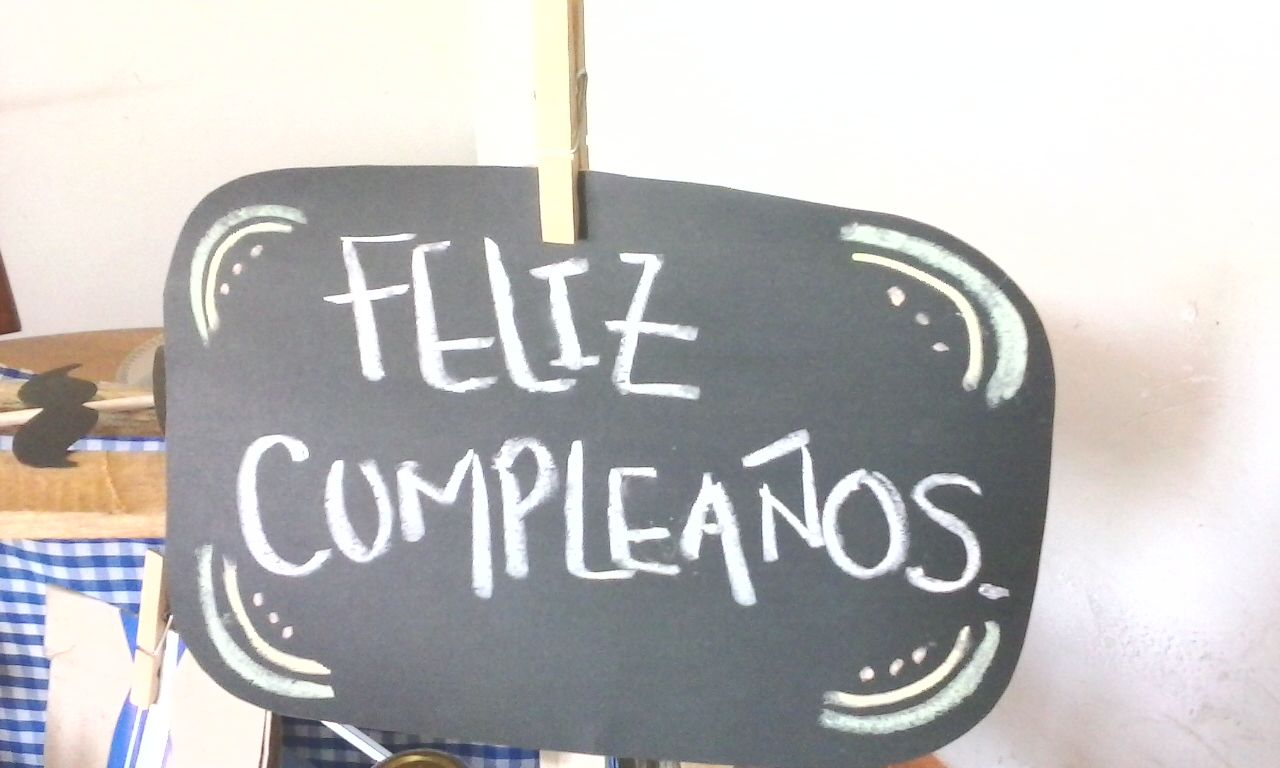 FELIZ
CUMPLEAÑOS.